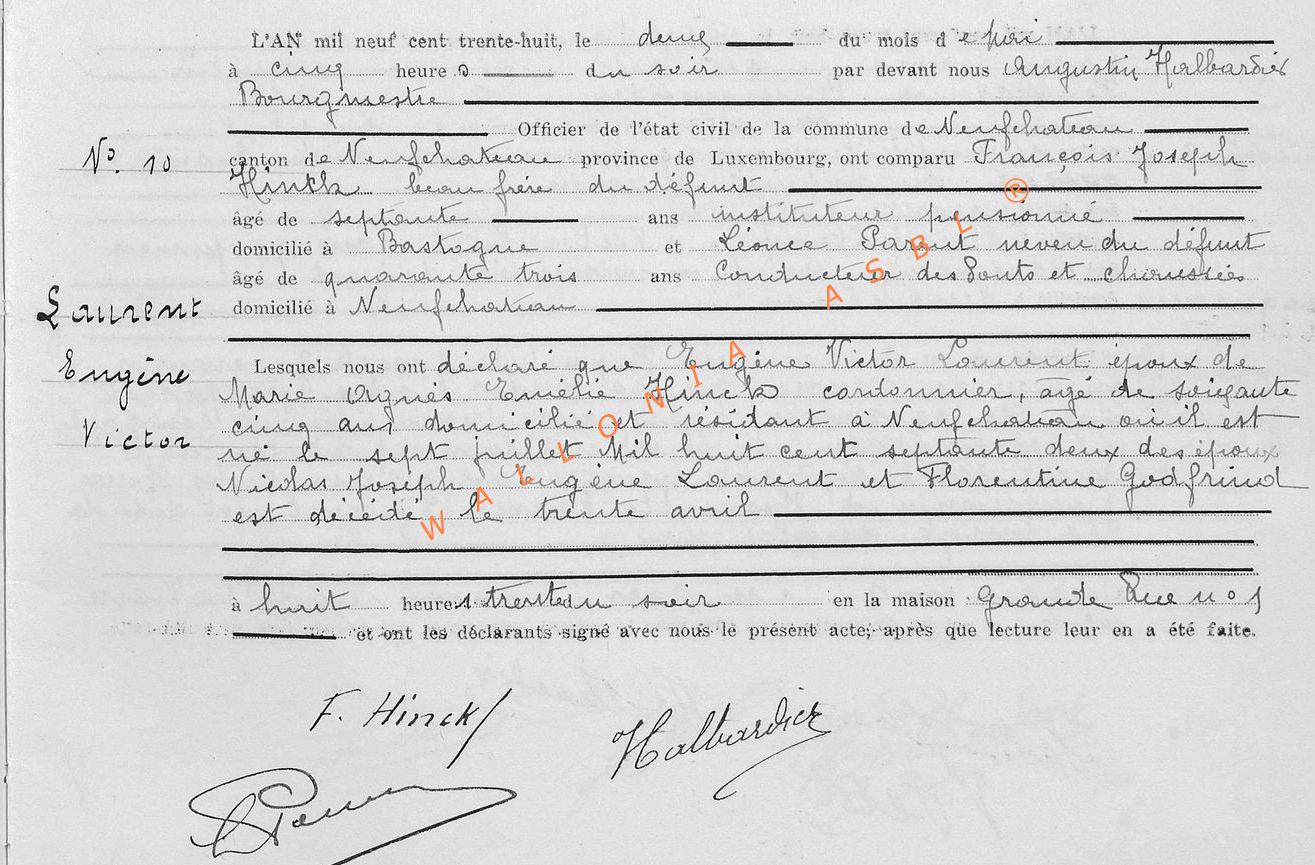 L'AN mil neuf cent trente-huit, le deux du mois de mai
à cinq heures du soir par devant nous Augustin Halbardier
Bourgmestre
Officier de l'état civil de la commune de Neufchateau
N° 10
canton de Neufchateau province de Luxembourg, ont comparu François Joseph
Hinck beau frère du défunt
âgé de septante ans instituteur pensionné
domicilié à Bastogne et Léonce neveu du défunt
âgé de quarante trois ans Conducteur des Ponts et chaussées
domicilié à Neufchateau
Laurent
Eugène
Victor
Lesquels nous ont déclaré que Eugène Victor Laurent époux de
Marie Agnès Emélie Hinck cordonnier, âgé de soixante
cinq ans domicilié et résidant à Neufchateau où il est
né le sept juillet Mil huit cent septante deux des époux
Nicolas Joseph Eugène Laurent et Florentine Godfrind
est décédé le trente avril
à huit heures trente du soir en la maison Grande Rue n° 1
et ont les déclarants signé avec nous le présent acte, après que lecture leur en a été faite.
F. Hinck
Halbardier
WALLONIA ASBL ®